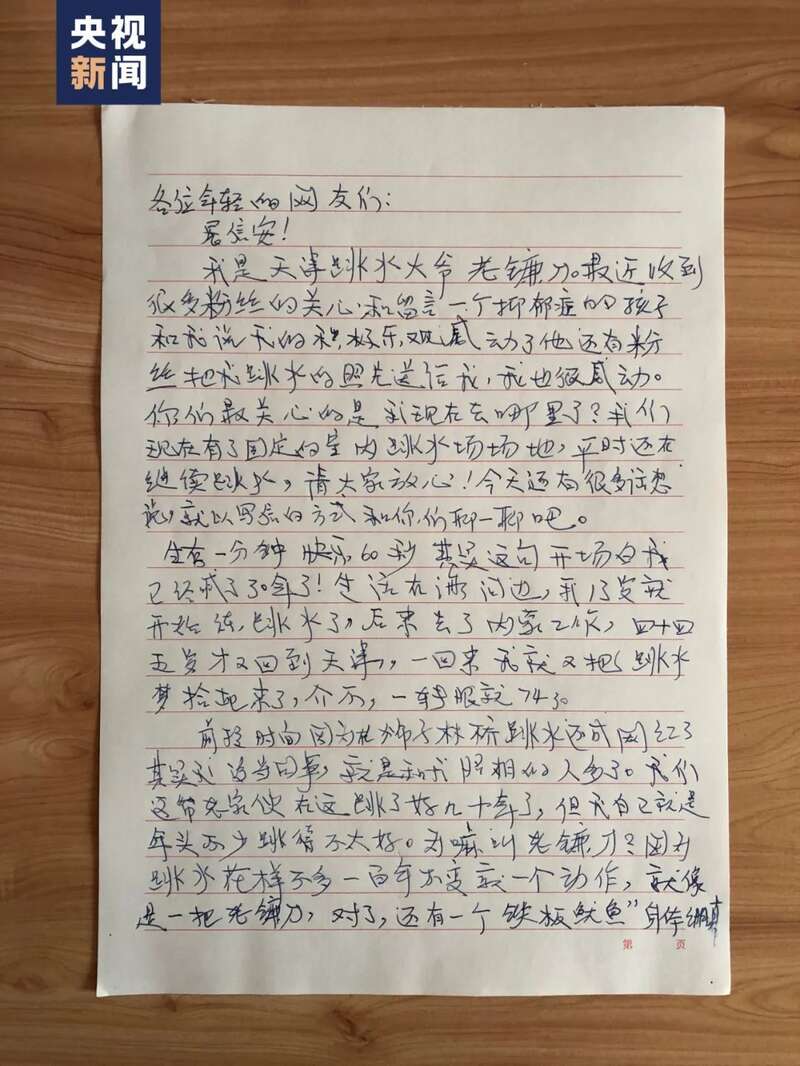 央视
新闻
各位年轻的网友们：
见信安！
我是天津跳水大爷老镰刀。最近收到
很多粉丝的关心和留言一个抑郁症的孩子
和我说我的积极乐观感动了他还有粉
丝把我跳水的照片送给我，我也很感动。
你们最关心的是我现在去哪里了？我们
现在有了固定的室内跳水场场地，平时还在
继续跳水，请大家放心！今天还有很多话想
说，就以写信的方式和你们聊一聊吧。
生命一分钟 快乐60秒 其实这句开场白我
已经喊了30年了！生活在海河边，我13岁就
开始练跳水了，后来去了内蒙工作，四十四
五岁才又回到天津，一回来我就又把跳水
梦拾起来了，介不，一转眼就74了。
前段时间因为在狮子林桥跳水还成网红了
其实没该当回事，就是和我照相的人多了。我们
这帮老家伙在这跳了好几十年了，但我自己就是
年头不少跳得不太好。为嘛叫老镰刀？因为
跳水花样不多一百年不变就一个动作，就像
是一把老镰刀，对了，还有一个铁板鱿鱼”身体绷直
第 页